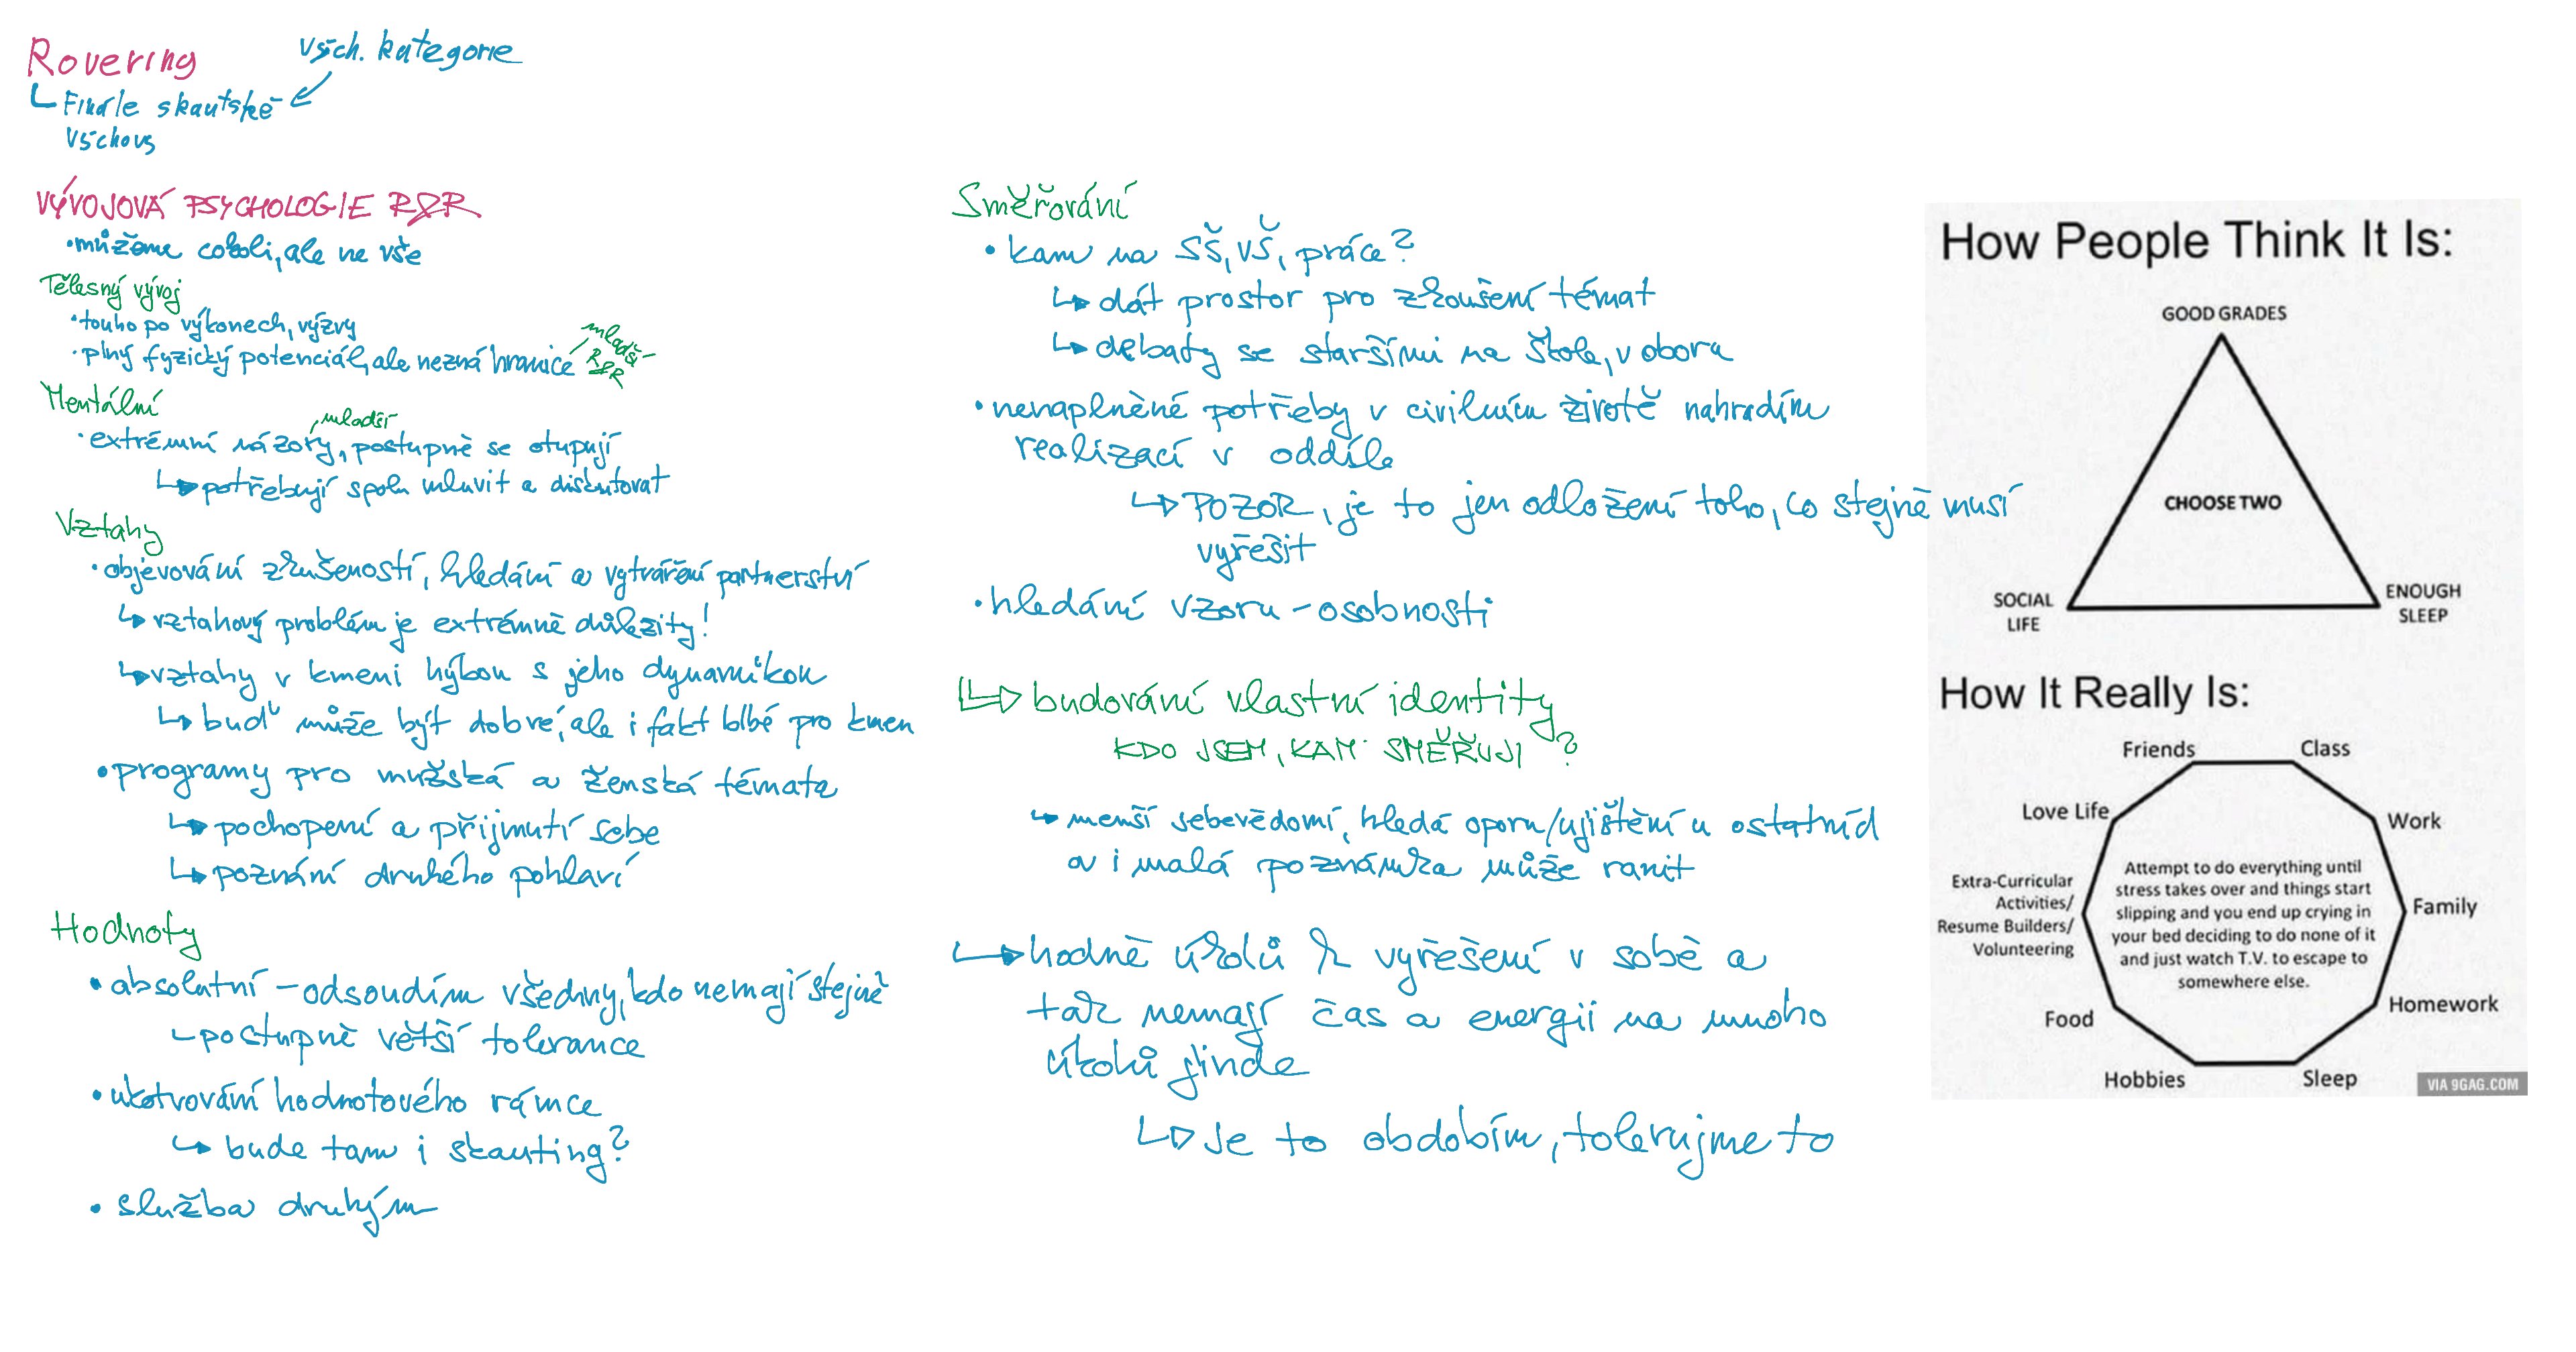 Rovering
vých. kategorie
↳ Finále skautské
výchovy
VÝVOJOVÁ PSYCHOLOGIE R&R
• můžeme cokoli, ale ne vše
Tělesný vývoj
• touha po výkonech, výzvy
• plný fyzický potenciál, ale nezná hranice
mladší
R&R
Mentální
mladší
• extrémní názory, postupně se otupují
↳ potřebují spolu mluvit a diskutovat
Vztahy
• objevování zkušeností, hledání a vytváření partnerství
↳ vztahový problém je extrémně důležitý!
↳ vztahy v kmeni hýbou s jeho dynamikou
↳ buď může být dobré, ale i fakt blbé pro kmen
• programy pro mužská a ženská témata
↳ pochopení a přijmutí sebe
↳ poznání druhého pohlaví
Hodnoty
• absolutní - odsoudím všechny, kdo nemají stejné
↳ postupně větší tolerance
• ukotvování hodnotového rámce
↳ bude tam i skauting?
• služba druhým
Směřování
• kam na SŠ, VŠ, práce?
↳ dát prostor pro zkoušení témat
↳ debaty se staršími na škole, v oboru
• nenaplněné potřeby v civilním životě nahradím
realizací v oddíle
↳ POZOR, je to jen odložení toho, co stejně musí
vyřešit
• hledání vzoru - osobnosti
↳ budování vlastní identity
KDO JSEM, KAM SMĚŘUJI?
↳ menší sebevědomí, hledá oporu/ujištění u ostatních
a i malá poznámka může ranit
↳ hodně úkolů k vyřešení v sobě a
tak nemají čas a energii na mnoho
úkolů jinde
↳ Je to obdobím, tolerujme to
How People Think It Is:
GOOD GRADES
CHOOSE TWO
SOCIAL
LIFE
ENOUGH
SLEEP
How It Really Is:
Friends
Class
Love Life
Work
Extra-Curricular
Activities/
Resume Builders/
Volunteering
Attempt to do everything until
stress takes over and things start
slipping and you end up crying in
your bed deciding to do none of it
and just watch T.V. to escape to
somewhere else.
Family
Food
Homework
Hobbies
Sleep
VIA 9GAG.COM